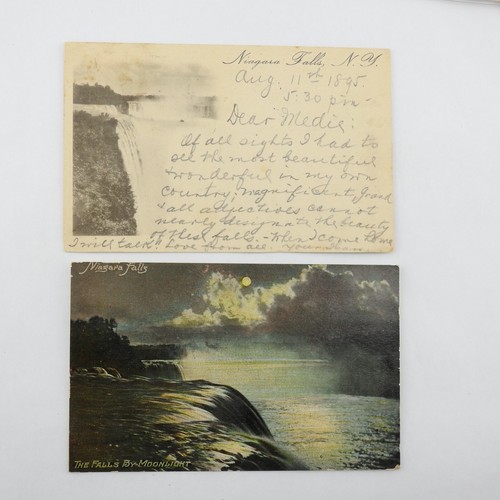 Niagara Falls, N. Y.
Aug. 11th 1895.
5:30 pm -
Dear Medie:
Of all sights I had to
see the most beautiful
& wonderful in my own
country, magnificent, grand
& all adjectives cannot
nearly designate the beauty
of these falls - When I come home
I will talk. Love from all. Your
Niagara Falls
THE FALLS BY MOONLIGHT